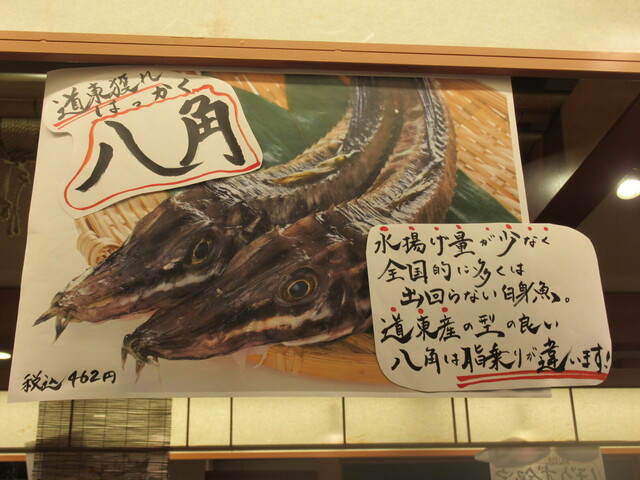 道東獲れ
はっかく
八角
水揚げ量が少なく
全国的に多くは
出回らない白身魚。
道東産の型の良い
八角は脂乗りが違います!
税込462円